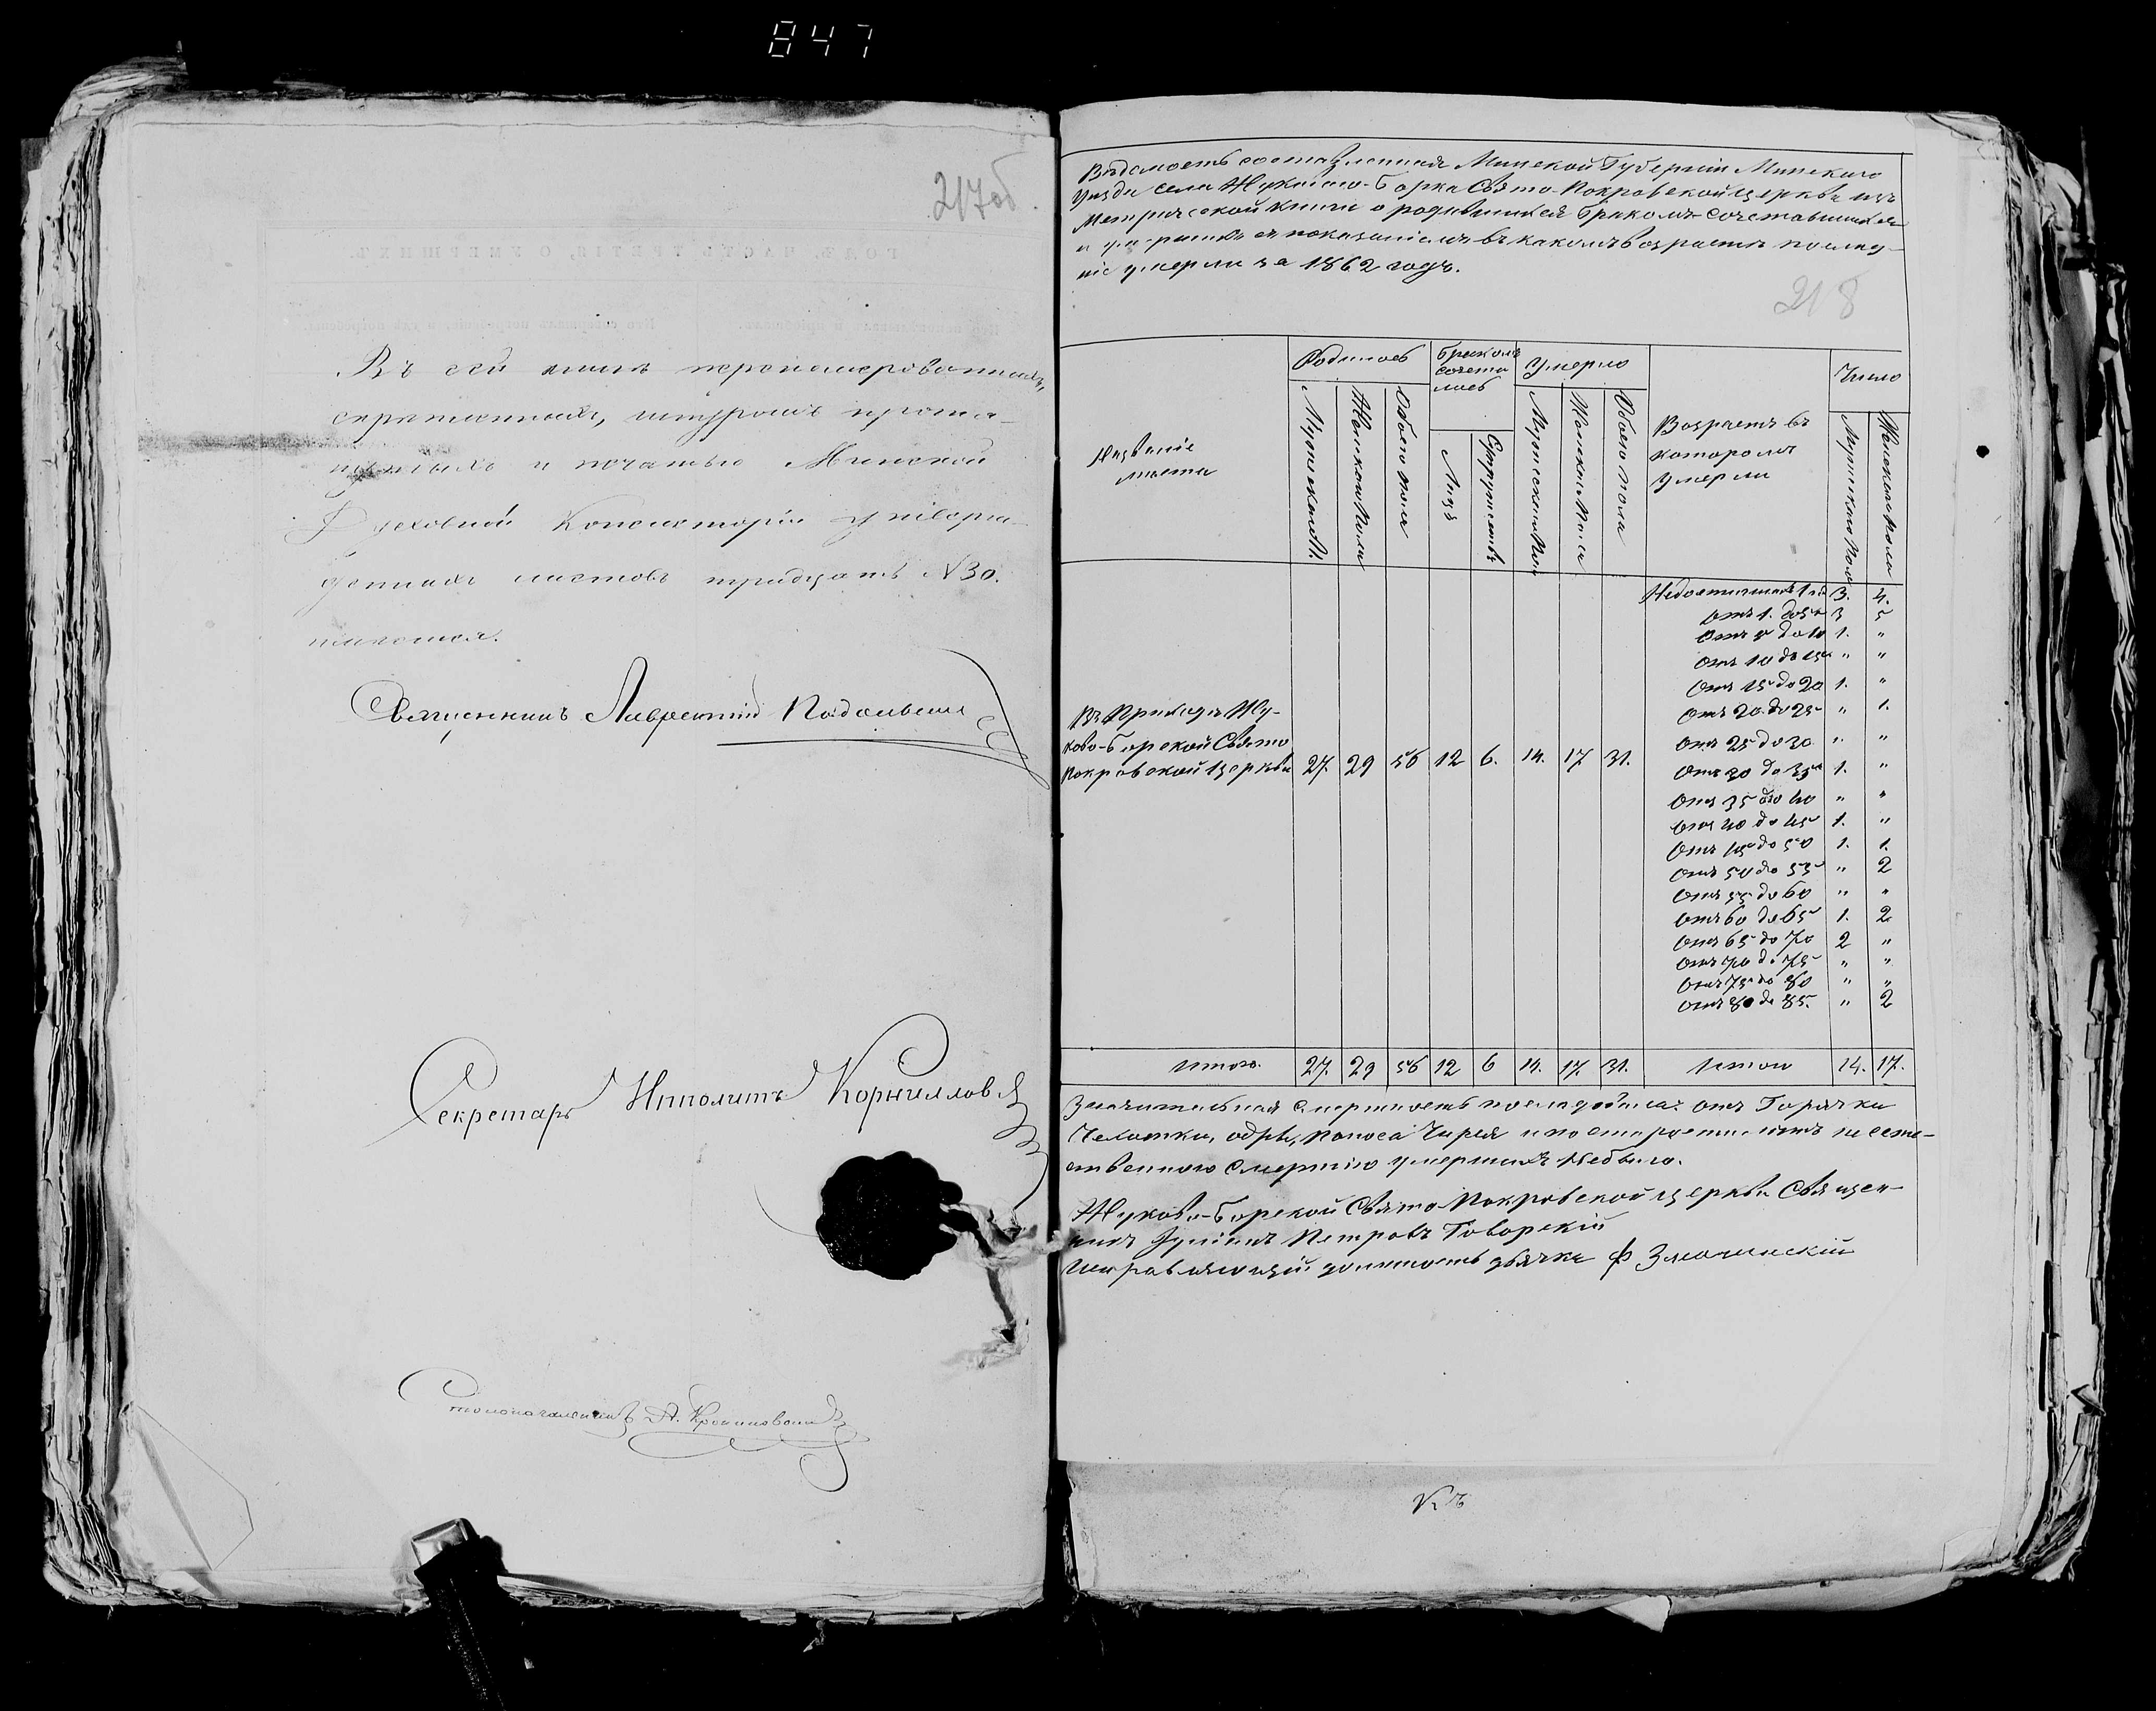 847
217об.
Въ сей книгѣ перономерованныхъ,
скрѣпленныхъ, шнуромъ прошну-
и печатью Минской
Духовной Консисторіи утвержд-
денныхъ листовъ тридцать №30.
Священникъ Лаврентій
Секретарь Ипполитъ Корниллов
Столоначальникъ А.
Вѣдомость составленная Минской Губерніи Минскаго
Уѣзда села Жуковаго-Борка Свято-Покровской церкви изъ
Метрической книги о родившихся бракомъ сочетавшихся
и умершихъ съ показаніемъ въ какомъ возрастѣ послѣд-
ніе умерли за 1862 годъ.
218
Названіе мѣста
Родилось
Бракомъ сочеталось
Умерло
Возрастъ въ которомъ умерли
Число
Мужескаго П.
Женскаго Пола
Обоего пола
Лицъ
Супружествъ
Мужескаго Пол
Женскаго Пола
Обоего пола
Мужескаго Пола
Женскаго Пола
Недостигшихъ 1 3. 4.
Отъ 1. до 5 3 5
Отъ 5 до 10 1. "
Отъ 10 до 15 " "
Отъ 15 до 20 1. "
Отъ 20 до 25 " 1.
Отъ 25 до 30 " "
Отъ 30 до 35 1. "
Отъ 35 до 40 " "
Отъ 40 до 45 1. "
Отъ 45 до 50 1. 1.
Отъ 50 до 55 " 2
Отъ 55 до 60 " "
Отъ 60 до 65 1. 2
Отъ 65 до 70 2 "
Отъ 70 до 75 " "
Отъ 75 до 80 " "
Отъ 80 до 85. " 2
Въ Приходѣ Жу-
ково-Борской Свято
Покровской Церкви 27. 29 56 12 6. 14. 17 31.
Итого. 27. 29 56 12 6 14. 17. 31. Итого 14. 17.
Значительная смертность послѣдовала отъ Горячки
Чахотки, одры, поноса Чирея и по старости
ственною смертію умершихъ Небыло.
Жуково-Борской Свято Покровской церкви Священ-
никъ Петровъ Говорскій
Исправляющій должность дьячка Ф